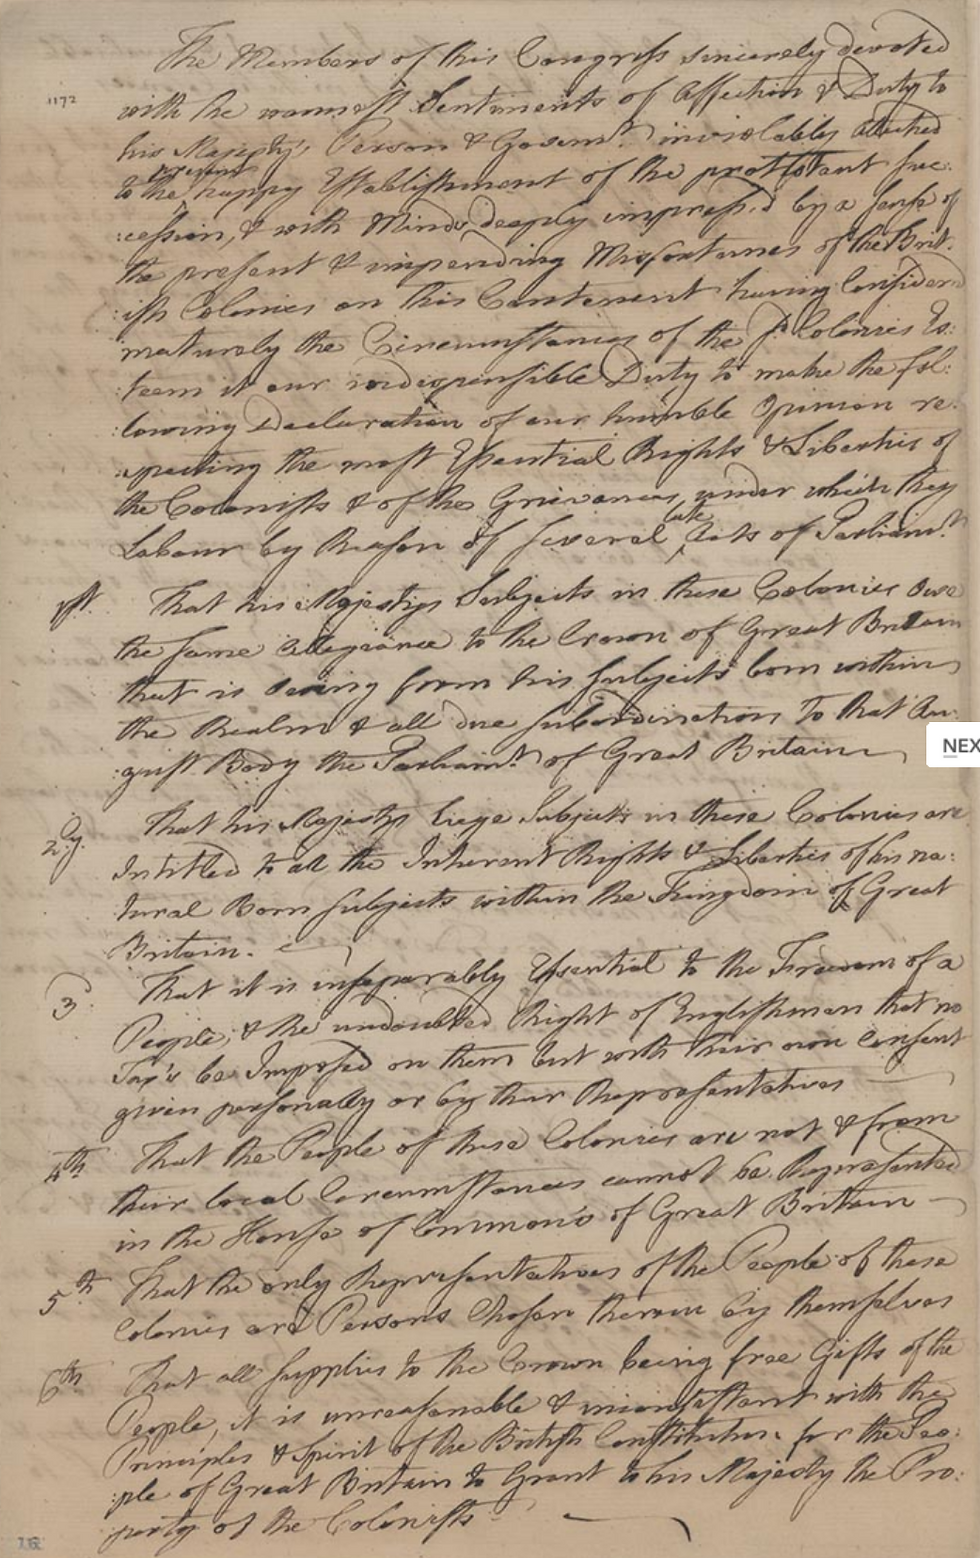 The Members of this Congress sincerely devoted
1172
with the warmest Sentiments of Affection & Duty to
his Majesty's Person & Governt. inviolably attached
present
to the happy Establishment of the protestant suc:
:cession, & with Minds deeply impress'd by a sense of
the present & impending Misfortunes of the Brit:
:ish Colonies on this Contenent having Considered
maturely the Circumstances of the sd. Colonies Es:
:teem it our indespensible Duty to make the fol:
:lowing Declaration of our humble Opinion re:
:specting the most Essential Rights & Liberties of
the Colonists & of the Grievances, under which they
late
Labour by Reason of several Acts of Parliamt.
1st. That his Majestys Subjects in these Colonies owe
the same allegiance to the Crown of Great Britain
that is owing from his subjects born within
the Realm & all due subordination to that Au:
:gust Body the Parliamt. of Great Britain
NEX
2dy. That his Majestys liege Subjects in these Colonies are
Intitled to all the Inherent Rights & Liberties of his na:
tural Born subjects within the Kingdom of Great
Britain.
3. That it is inseparably Essential to the Freedom of a
People, & the undoubted Right of Englishmen that no
Tax's be Imposed on them but with their own Consent
given personally or by their Representatives
4th That the People of these Colonies are not & from
their local Circumstances cannot be Represented
in the House of Common's of Great Britain
5th That the only Representatives of the People of these
Colonies are Persons Chosen therein by themselves
6th That all supplies to the Crown being free Gifts of the
People, it is unreasonable & inconsistant with the
Principles & Spirit of the British Constitution for the Peo:
:ple of Great Britain to Grant to his Majesty the Pro:
perty of the Colonists.